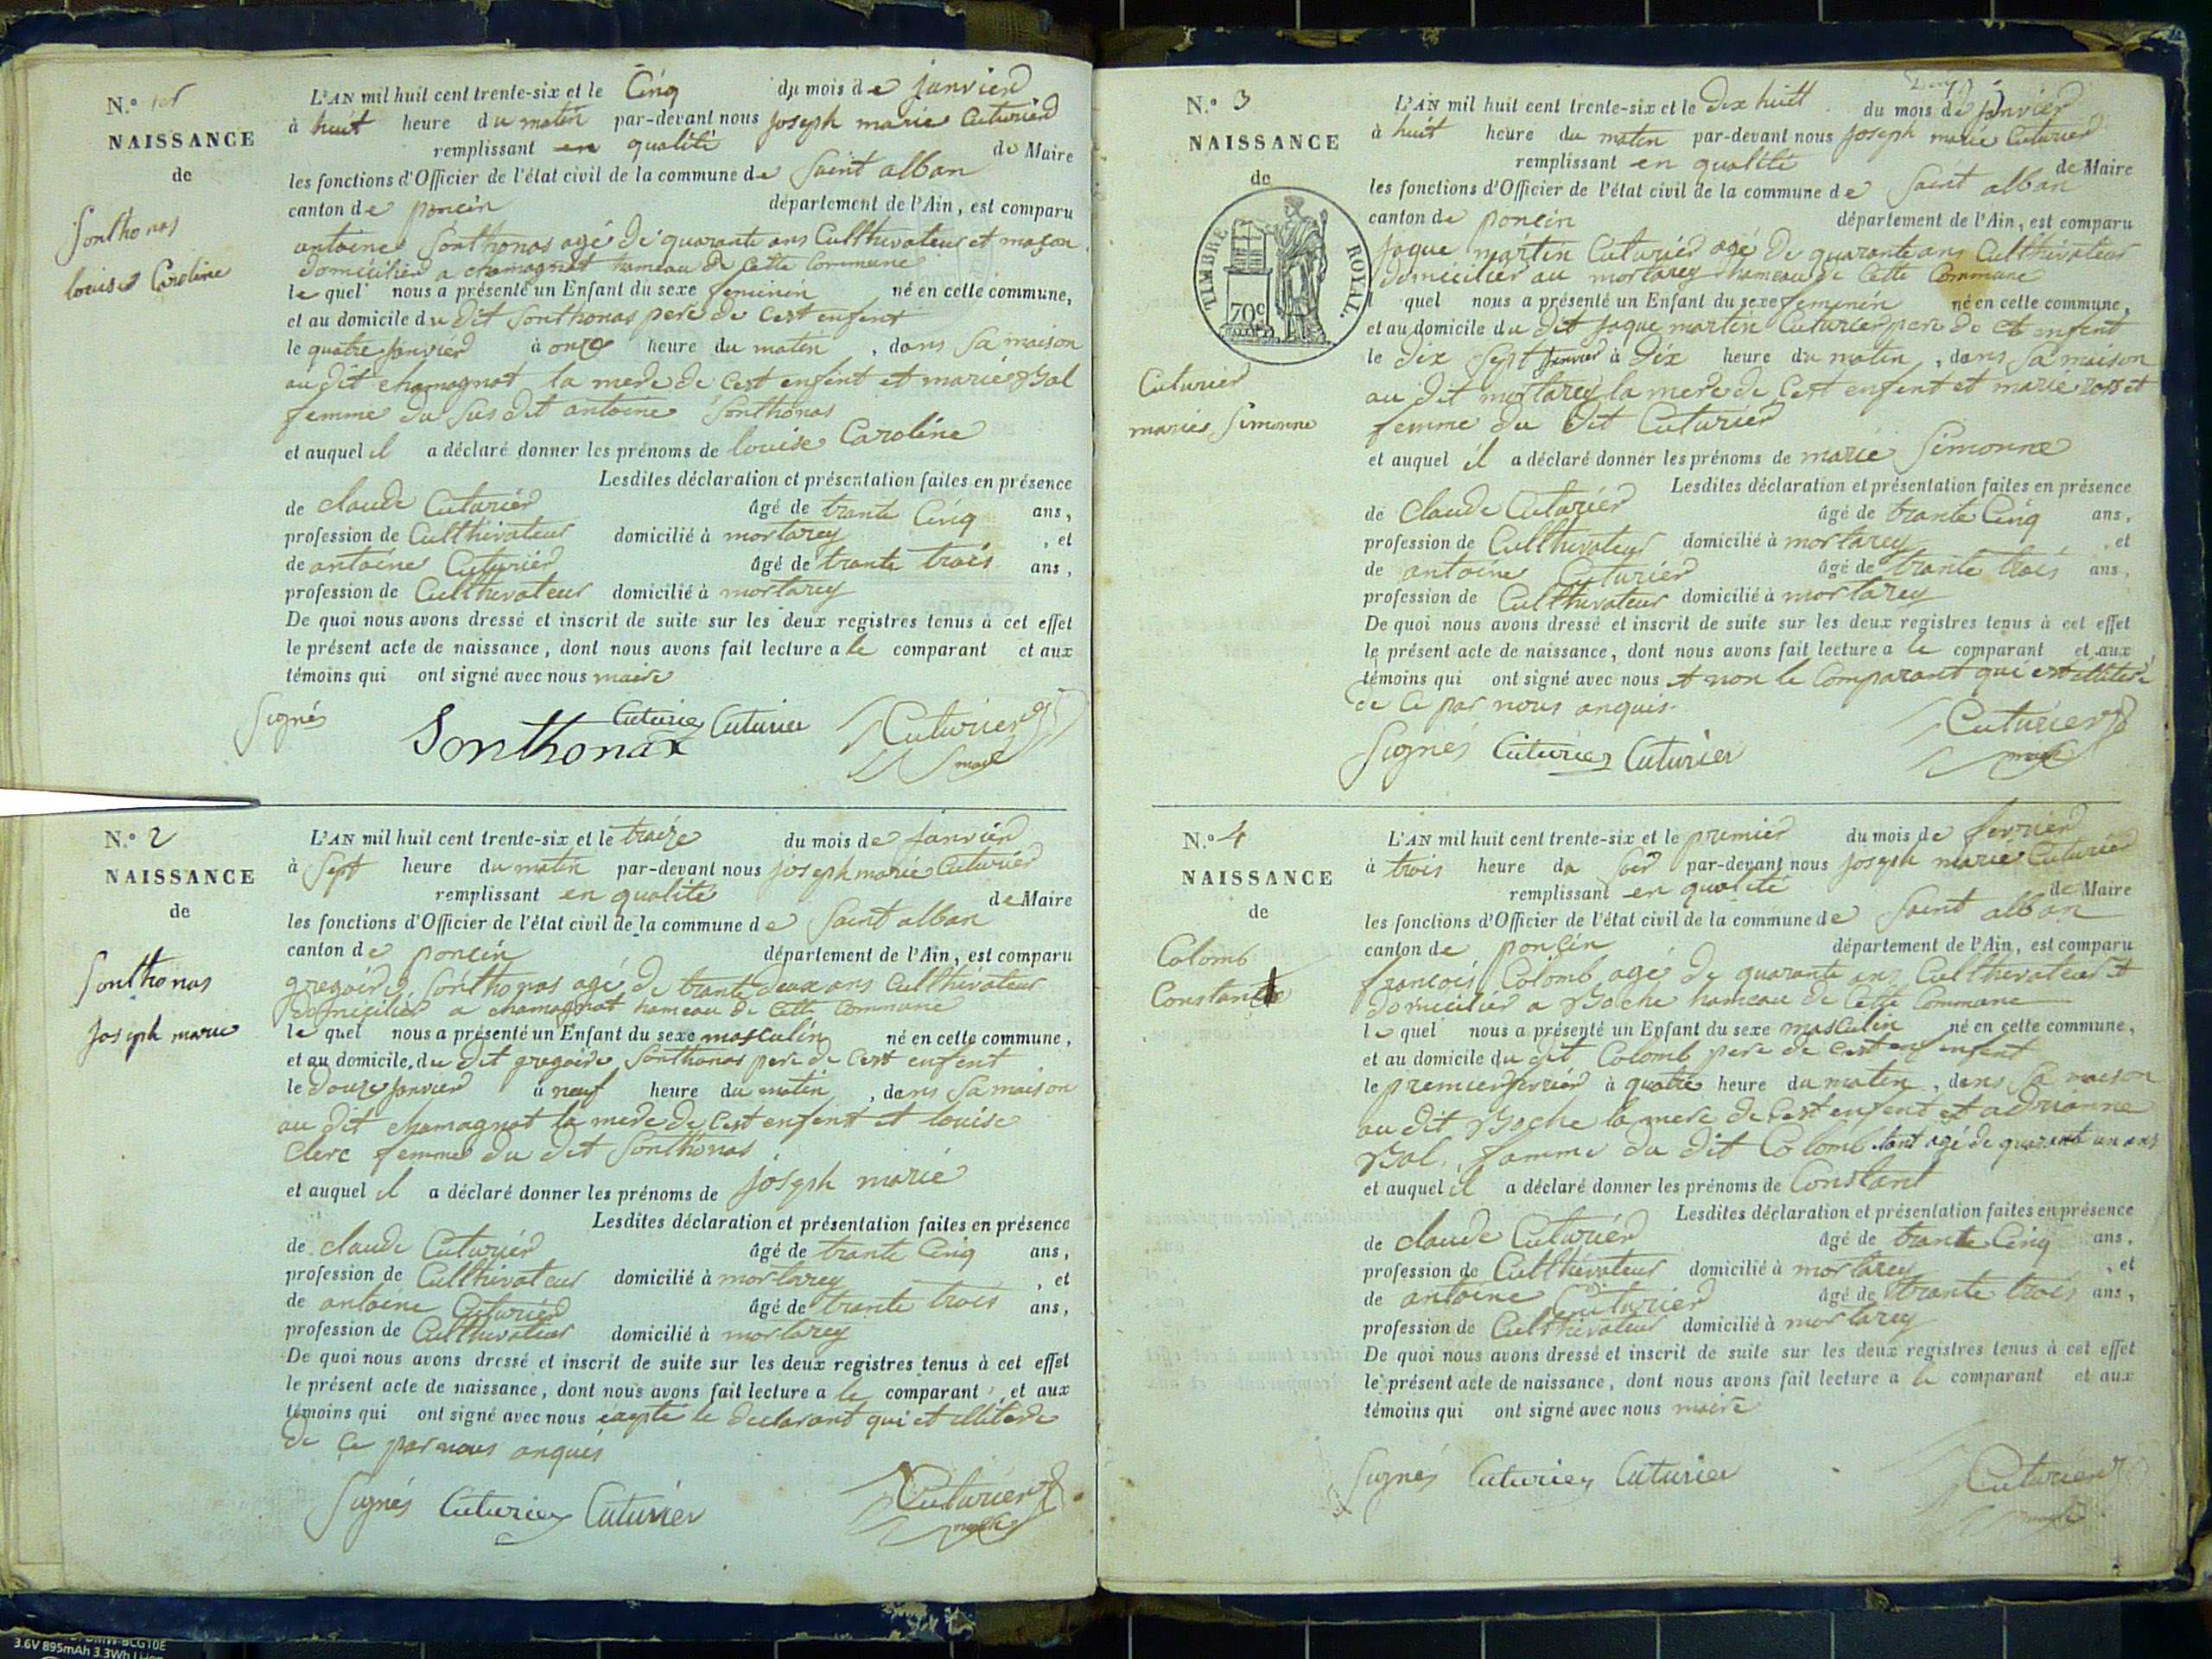 N.° 1er
NAISSANCE
de
Sonthonas
louise Caroline
L'AN mil huit cent trente-six et le Cinq du mois de janvier
à huit heure du matin par-devant nous joseph marie Cuturier
remplissant en qualité de Maire
les fonctions d'Officier de l'état civil de la commune de Saint alban
canton de poncin département de l'Ain, est comparu
antoine Sonthonas agé de quarante ans Culthivateur et maçon
domicilier a chamagnat hameau de Cette Commune
le quel nous a présenté un Enfant du sexe feminin né en cette commune,
et au domicile du dit Sonthonas pere de Cest enfent
le quatre janvier à onze heure du matin, dans Sa maison
au dit chamagnat la mere de Cest enfent et marie Bal
femme du Sus dit antoine Sonthonas
et auquel il a déclaré donner les prénoms de louise Caroline
Lesdites déclaration et présentation faites en présence
de claude Cuturier âgé de trante Cinq ans,
profession de Culthivateur domicilié à mortarey, et
de antoine Cuturier âgé de trante trois ans,
profession de Culthivateur domicilié à mortarey
De quoi nous avons dressé et inscrit de suite sur les deux registres tenus à cet effet
le présent acte de naissance, dont nous avons fait lecture a le comparant et aux
témoins qui ont signé avec nous maire
Signés Sonthonax Cuturier Cuturier Cuturier
maire
N.° 2
NAISSANCE
de
Sonthonas
joseph marie
L'AN mil huit cent trente-six et le traize du mois de janvier
à Sept heure du matin par-devant nous joseph marie Cuturier
remplissant en qualité de Maire
les fonctions d'Officier de l'état civil de la commune de Saint alban
canton de poncin département de l'Ain, est comparu
gregoire Sonthonas agé de trante deux ans Culthivateur
domicilier a chamagnat hameau de Cette Commune
le quel nous a présenté un Enfant du sexe masculin né en cette commune,
et au domicile du dit gregoire Sonthonas pere de Cest enfent
le douze janvier à neuf heure du matin, dans Sa maison
au dit chamagnat la mere de Cest enfent et louise
Clerc femme du dit Sonthonas
et auquel il a déclaré donner les prénoms de joseph marie
Lesdites déclaration et présentation faites en présence
de claude Cuturier âgé de trante Cinq ans,
profession de Culthivateur domicilié à mortarey, et
de antoine Cuturier âgé de trante trois ans,
profession de Culthivateur domicilié à mortarey
De quoi nous avons dressé et inscrit de suite sur les deux registres tenus à cet effet
le présent acte de naissance, dont nous avons fait lecture a le comparant et aux
témoins qui ont signé avec nous éxepté le declarant qui et illitere
de Ce par nous anquis
Signés Cuturier Cuturier Cuturier
maire
N.° 3
NAISSANCE
de
TIMBRE ROYAL.
70c
Cuturier
marie Simonne
L'AN mil huit cent trente-six et le dix huitt du mois de janvier
à huit heure du matin par-devant nous joseph marie Cuturier
remplissant en qualité de Maire
les fonctions d'Officier de l'état civil de la commune de Saint alban
canton de poncin département de l'Ain, est comparu
jaque martin Cuturier agé de quarante ans Culthivateur
domicilier au mortarey hameau de Cette Commune
quel nous a présenté un Enfant du sexe feminin né en cette commune,
et au domicile du dit jaque martin Cuturier pere de Ct enfent
le dix Sept janvier à dix heure du matin, dans Sa maison
au dit mortarey la mere de Cest enfent et marie rosset
femme du dit Cuturier
et auquel il a déclaré donner les prénoms de marie Simonne
Lesdites déclaration et présentation faites en présence
de claude Cuturier âgé de trante Cinq ans,
profession de Culthivateur domicilié à mortarey, et
de antoine Cuturier âgé de trante trois ans,
profession de Culthivateur domicilié à mortarey
De quoi nous avons dressé et inscrit de suite sur les deux registres tenus à cet effet
le présent acte de naissance, dont nous avons fait lecture a le comparant et aux
témoins qui ont signé avec nous et non le Comparant qui est illitere
de Ce par nous anquis
Signés Cuturier Cuturier Cuturier
maire
N.° 4
NAISSANCE
de
Colomb
Constant
L'AN mil huit cent trente-six et le premier du mois de fevrier
à trois heure du soir par-devant nous joseph marie Cuturier
remplissant en qualité de Maire
les fonctions d'Officier de l'état civil de la commune de Saint alban
canton de poncin département de l'Ain, est comparu
francois Colomb agé de quarante ans Culthivateur et
domicilier a Boche hameau de Cette Commune
le quel nous a présenté un Enfant du sexe masculin né en cette commune,
et au domicile du dit Colomb pere de Cest enfent
le premier fevrier à quatre heure du matin, dans Sa maison
au dit Boche la mere de Cest enfent et adrianne
Bal, famme du dit Colomb tant agé de quarante un ans
et auquel il a déclaré donner les prénoms de Constant
Lesdites déclaration et présentation faites en présence
de claude Cuturier âgé de trante Cinq ans,
profession de Culthivateur domicilié à mortarey, et
de antoine Cuturier âgé de trante trois ans,
profession de Culthivateur domicilié à mortarey
De quoi nous avons dressé et inscrit de suite sur les deux registres tenus à cet effet
le présent acte de naissance, dont nous avons fait lecture a le comparant et aux
témoins qui ont signé avec nous maire
Signés Cuturier Cuturier Cuturier
maire
3.6V 895mAh 3.3Wh